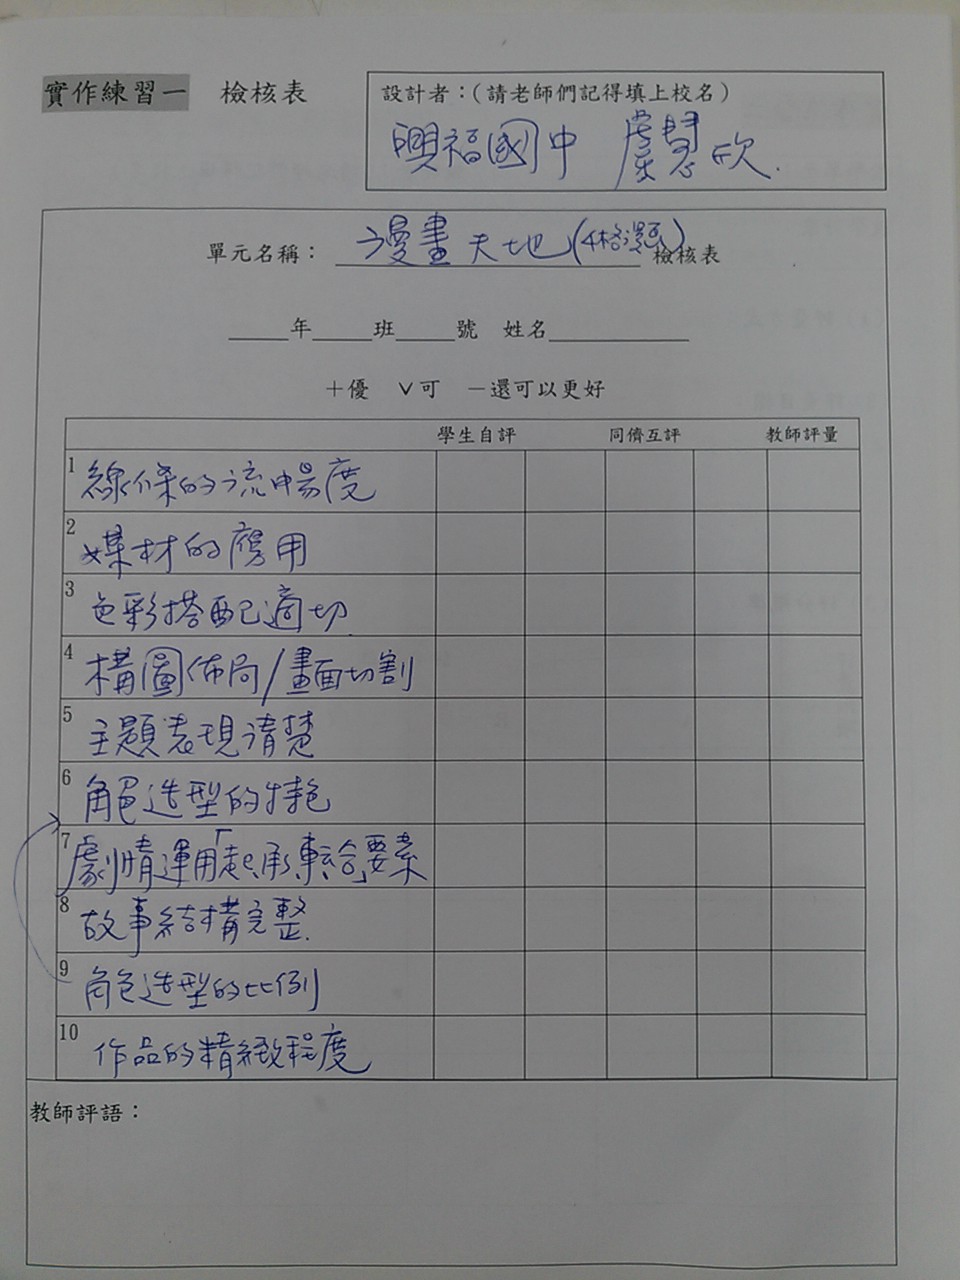 實作練習一 檢核表
設計者：(請老師們記得填上校名)
興福國中 虞慧欣
單元名稱：漫畫天地(4格漫畫)檢核表
___年___班___號 姓名_______
＋優 ∨可 －還可以更好
學生自評 同儕互評 教師評量
1 線條的流暢度
2 媒材的應用
3 色彩搭配適切
4 構圖佈局/畫面切割
5 主題表現清楚
6 角色造型的特色
7 劇情運用「起承轉合」要素
8 故事結構完整.
9 角色造型的比例
10 作品的精緻程度
教師評語：